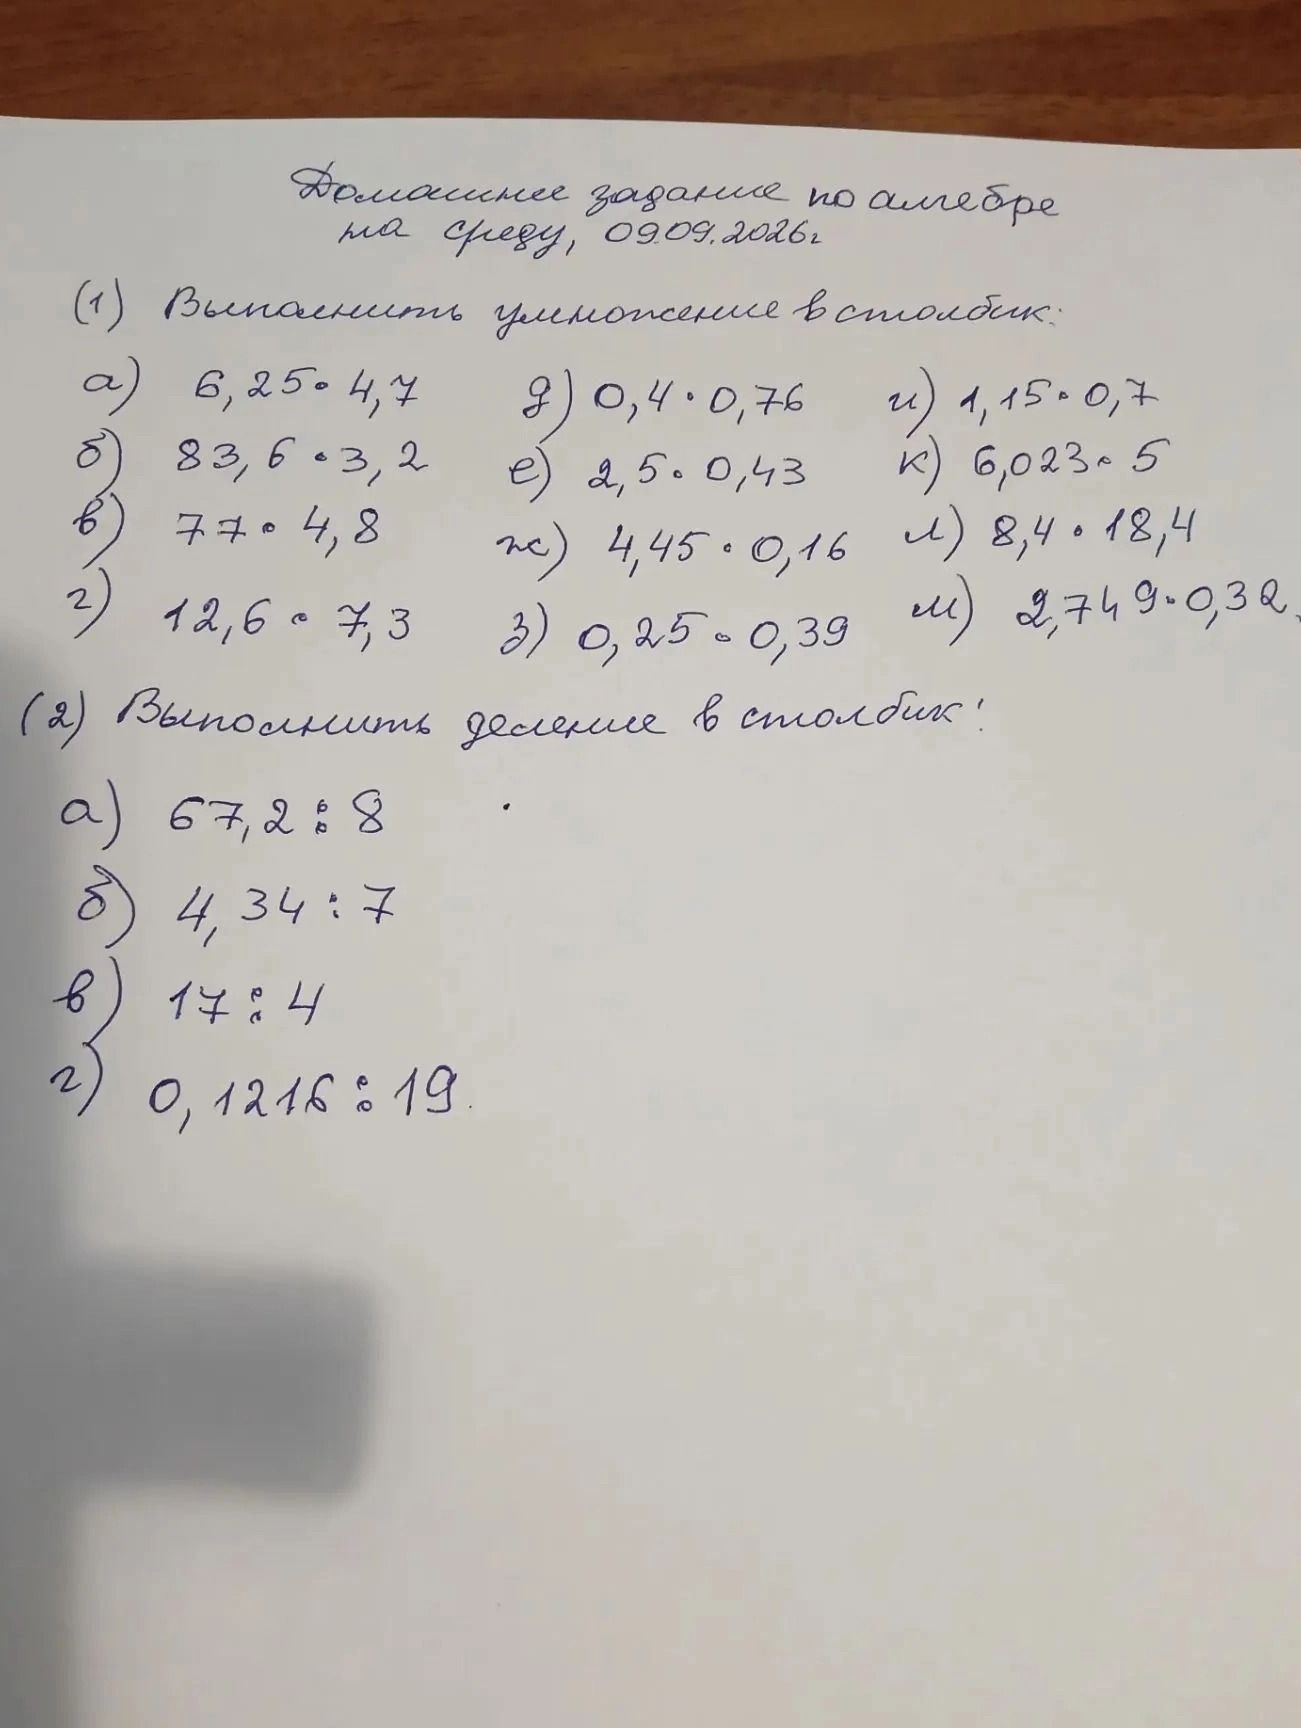 Домашнее задание по алгебре
на среду, 09.09.2026г
(1) Выполнить умножение в столбик:
а) 6,25 • 4,7 д) 0,4 • 0,76 и) 1,15 • 0,7
б) 83,6 • 3,2 е) 2,5 • 0,43 к) 6,023 • 5
в) 77 • 4,8 ж) 4,45 • 0,16 л) 8,4 • 18,4
г) 12,6 • 7,3 з) 0,25 • 0,39 м) 2,749 • 0,32.
(2) Выполнить деление в столбик:
а) 67,2 : 8
б) 4,34 : 7
в) 17 : 4
г) 0,1216 : 19.